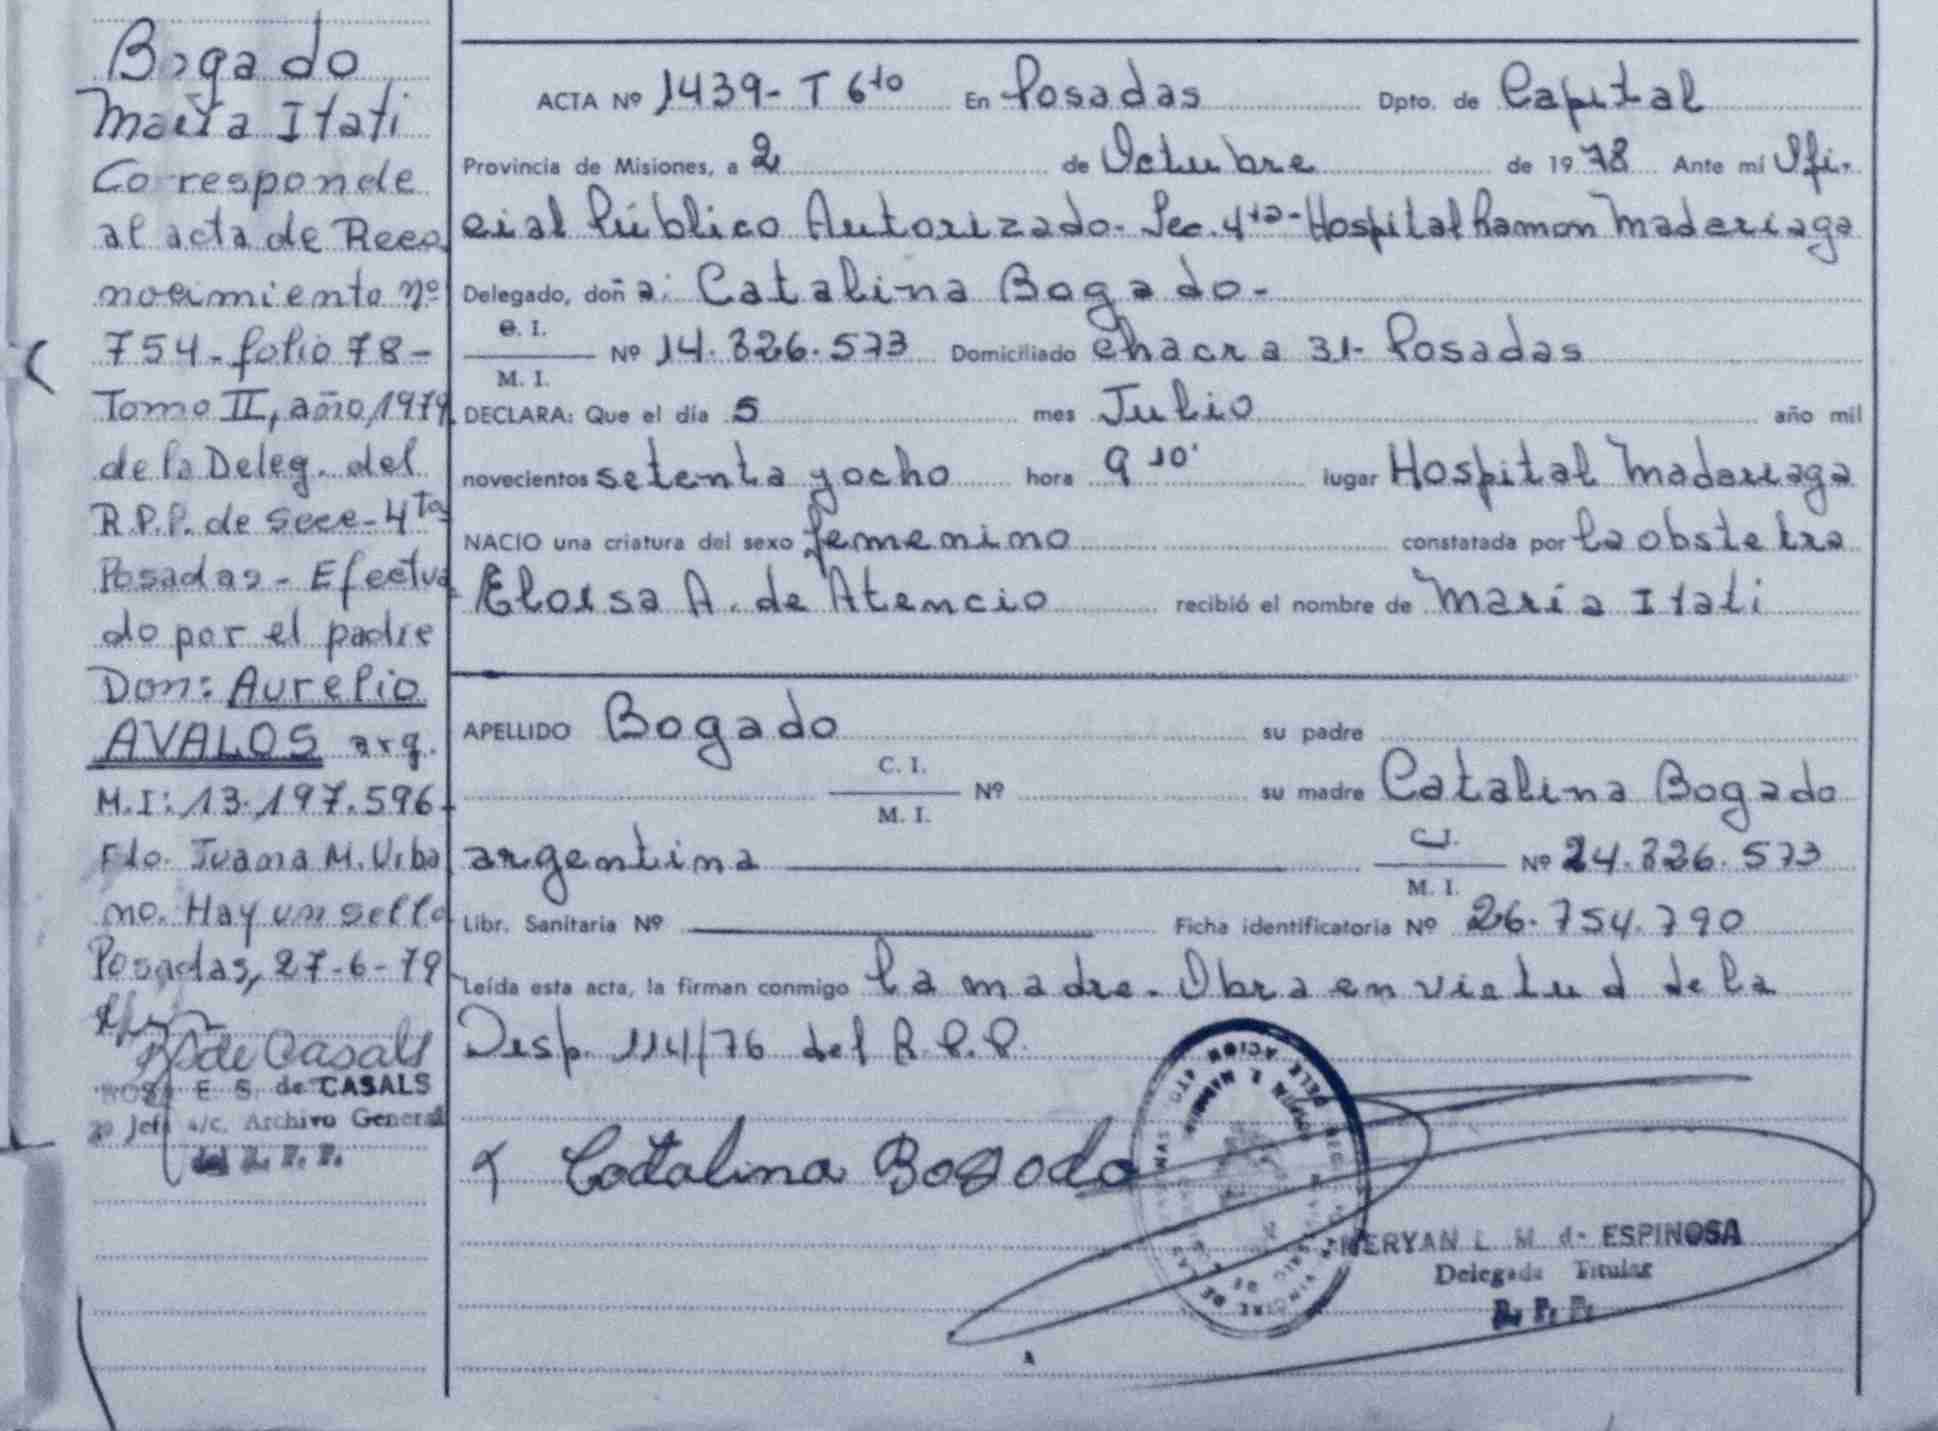 Bogado
María Itati
Corresponde
al acta de Reco
nocimiento Nº
754-folio 78-
Tomo II, año, 1979
de la Deleg. del
R.P.P. de Secc-4ta
Posadas- Efectua
do por el padre
Don: Aurelio
AVALOS arg.
M.I: 13.197.596.
Fdo. Juana M. Urba
no. Hay un sello
Posadas, 27-6-79
de Casals
ROSA E. S. de CASALS
2º Jefe a/c. Archivo General
del R. P. P.
ACTA Nº 1439- T 6to En Posadas Dpto. de Capital
Provincia de Misiones, a 2 de Octubre de 1978 Ante mí Ofi-
cial Público Autorizado- Sec. 4ta- Hospital Ramon Madariaga
Delegado, doña: Catalina Bogado-
C. I.
M. I. Nº 14.326.573 Domiciliado Chacra 31- Posadas
DECLARA: Que el día 5 mes Julio año mil
novecientos setenta y ocho hora 9 10' lugar Hospital Madariaga
NACIO una criatura del sexo femenino constatada por la obstetra
Eloisa A. de Atencio recibió el nombre de María Itati
APELLIDO Bogado su padre
C. I.
M. I. Nº su madre Catalina Bogado
argentina C.I.
M. I. Nº 24.326.573
Libr. Sanitaria Nº Ficha identificatoria Nº 26.754.790
Leída esta acta, la firman conmigo la madre. Obra en virtud de la
Disp. 114/76 del R.P.P.
Catalina Bogado
NERYAN L. M. de ESPINOSA
Delegada Titular
R. P. P.